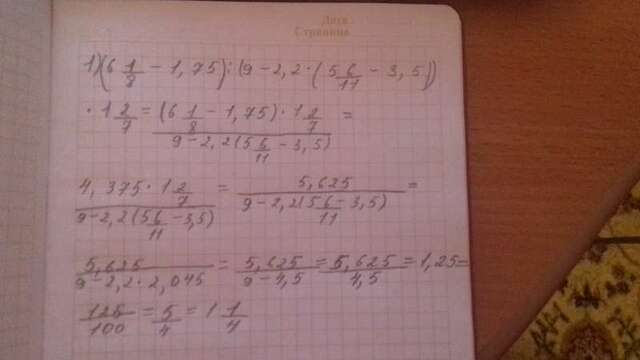 Дата
Страница
1)(6 1/8 - 1,75):(9-2,2·(5 6/11 - 3,5))
·1 2/7 = (6 1/8 - 1,75)·1 2/7 / 9-2,2(5 6/11 - 3,5) =
4,375·1 2/7 / 9-2,2(5 6/11 - 3,5) = 5,625 / 9-2,2(5 6/11 - 3,5) =
5,625 / 9-2,2·2,045 = 5,625 / 9-4,5 = 5,625 / 4,5 = 1,25=
125/100 = 5/4 = 1 1/4